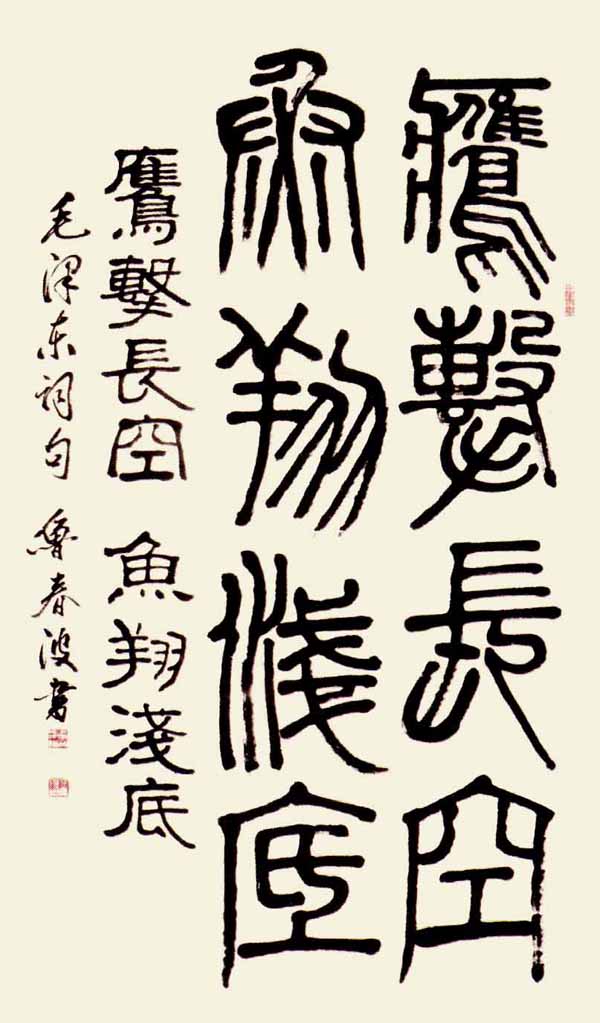 鷹擊長空
魚翔淺底
鷹擊長空 魚翔淺底
毛泽东词句 魯春波書